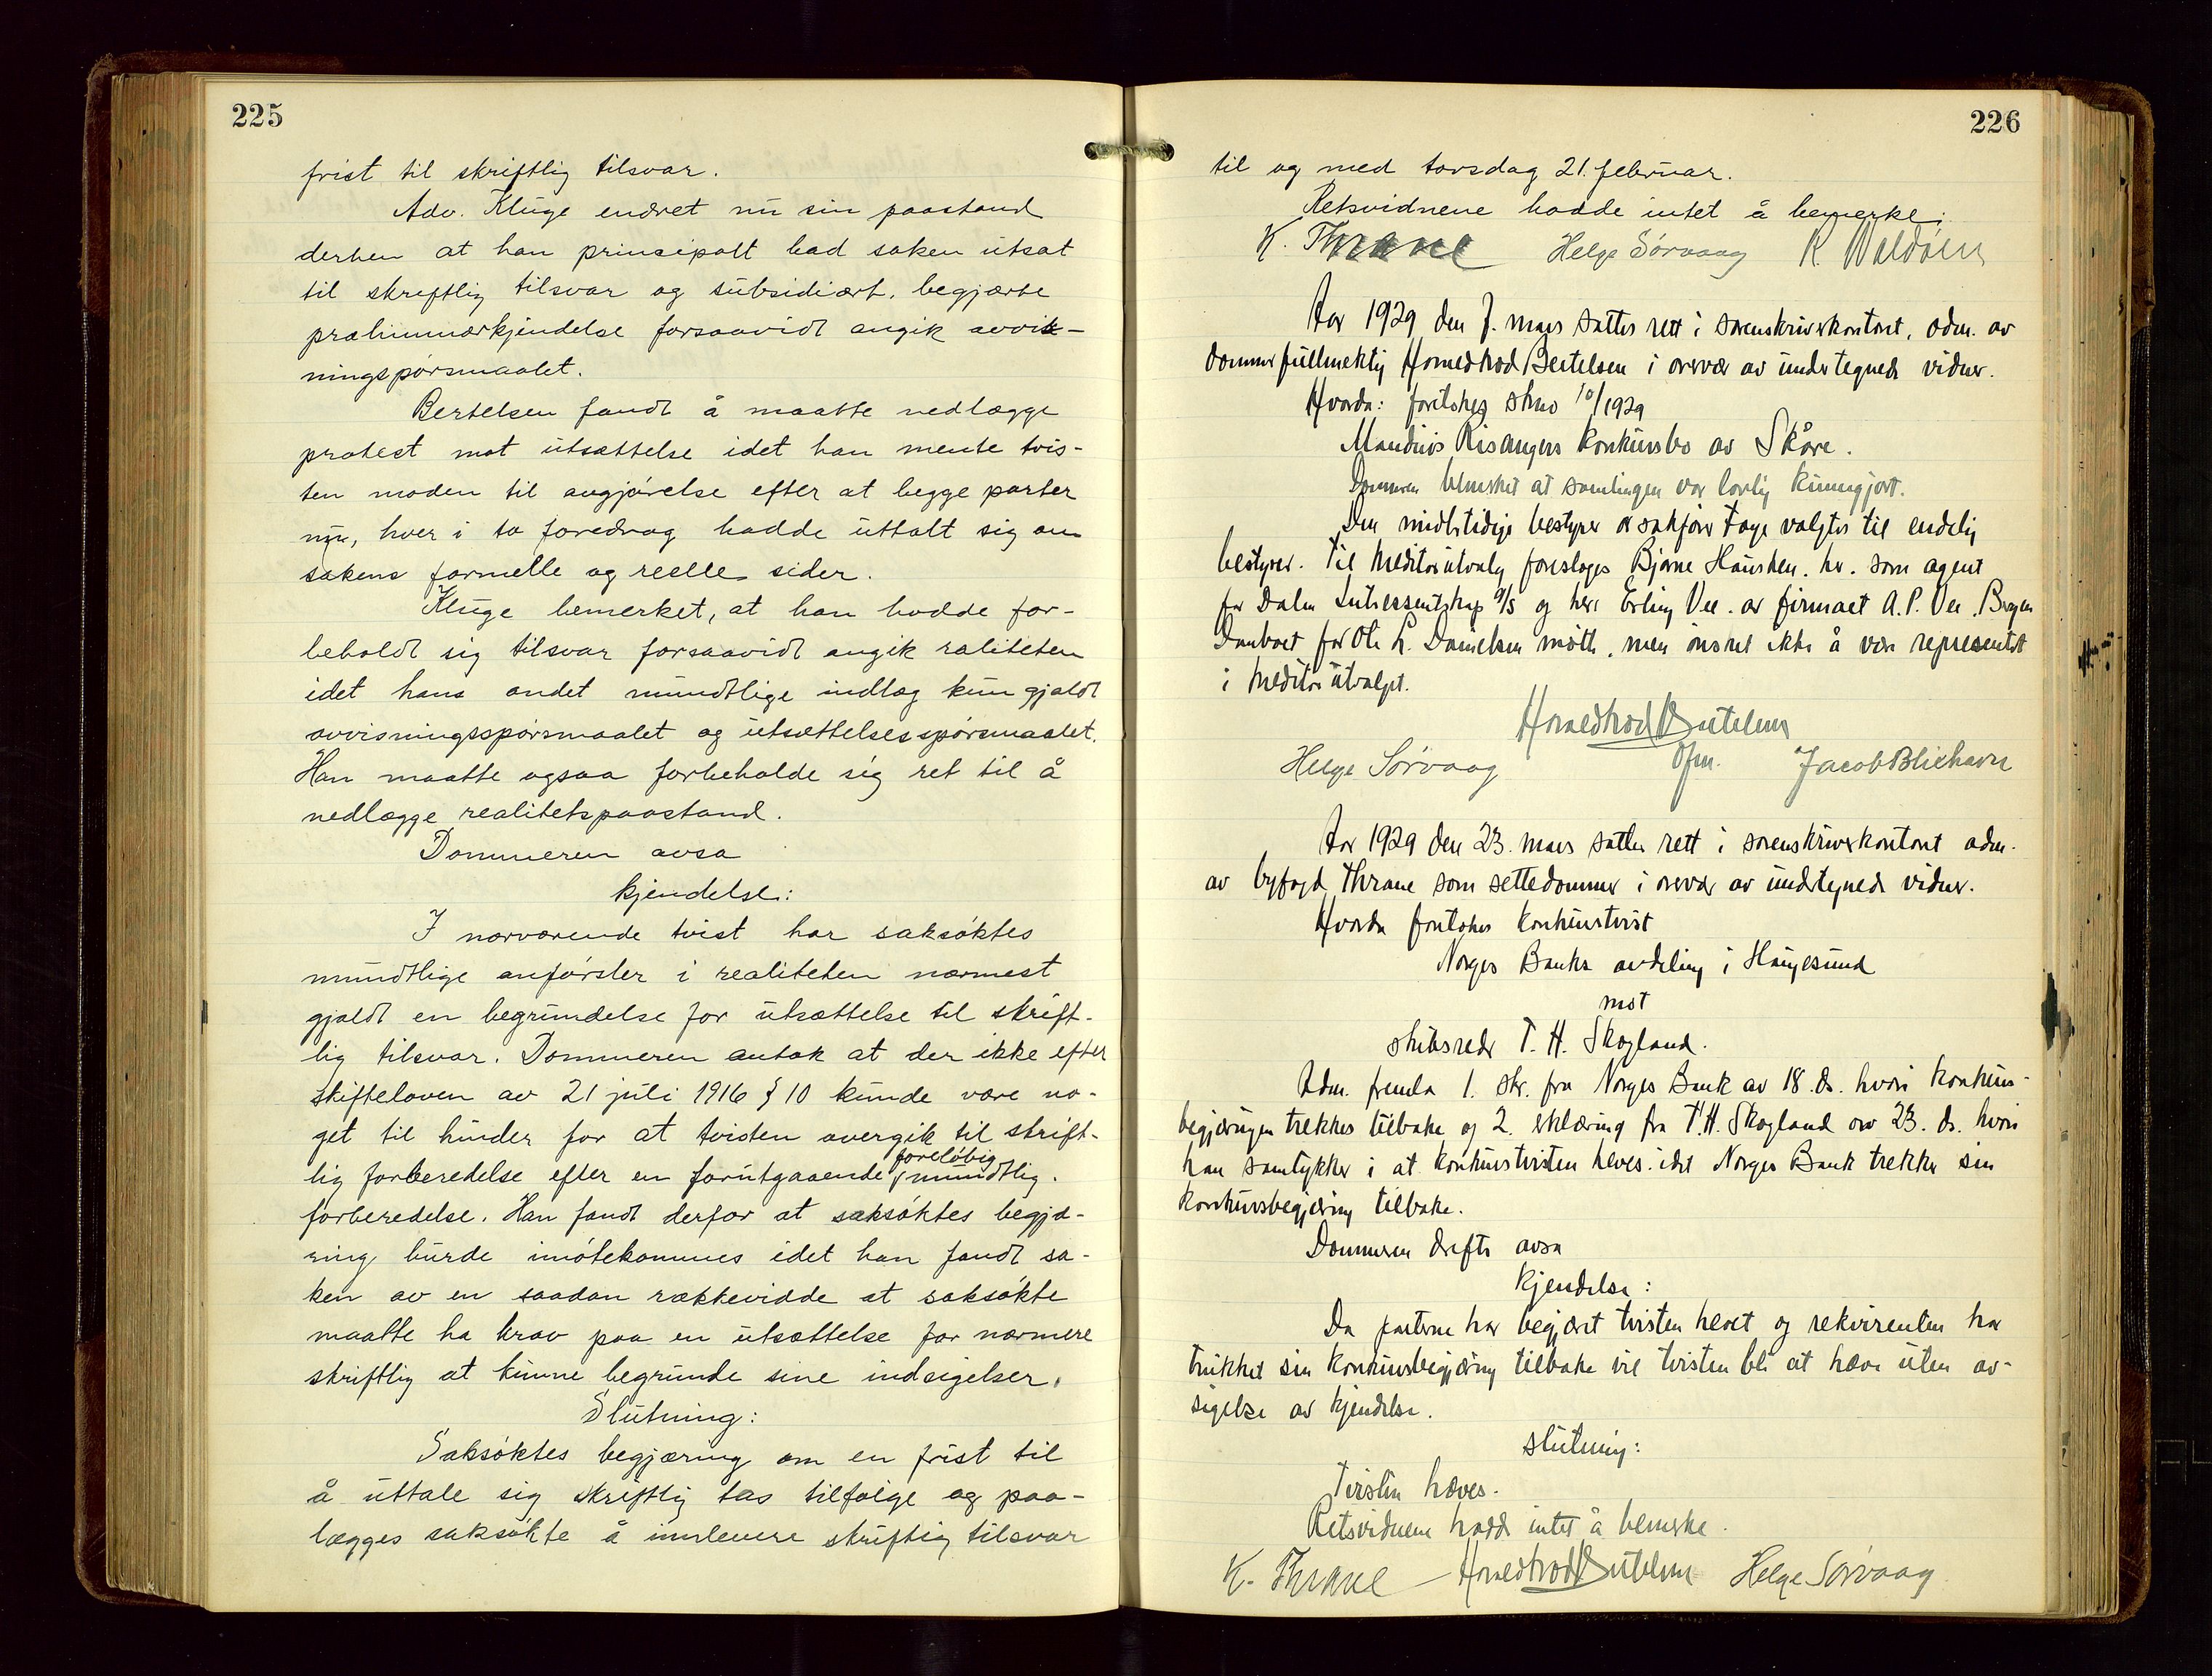 225
frist til skriftlig tilsvar.
Adv. Kluge endret nu sin paastand
derhen at han principalt bad saken utsat
til skriftlig tilsvar og subsidiært begjærte
præliminærkjendelse forsaavidt angik avvis-
ningspørsmaalet.
Bertelsen fandt å maatte nedlægge
protest mot utsættelse idet han mente tvis-
ten moden til avgjørelse efter at begge parter
nu, hver i to foredrag hadde uttalt sig om
sakens formelle og reelle sider.
Kluge bemerket, at han hadde for-
beholdt sig tilsvar forsaavidt angik raliteten
idet hans andet mundtlige indlæg kun gjaldt
avvisningsspørsmaalet og utsættelsesspørsmaalet.
Han maatte ogsaa forbeholde sig ret til å
nedlægge realitetspaastand.
Dommeren avsa
kjendelse:
I nærværende tvist har saksøktes
mundtlige anførsler i realiteten nærmest
gjaldt en begrundelse for utsættelse til skrift-
lig tilsvar. Dommeren antok at der ikke efter
skifteloven av 21 juli 1916 § 10 kunde være no-
get til hinder for at tvisten overgik til skrift-
lig forberedelse efter en forutgaaende foreløbig mundtlig
forberedelse. Han fandt derfor at saksøktes begjæ-
ring burde imøtekommes idet han fandt sa-
ken av en saadan rækkevidde at saksøkte
maatte ha krav paa en utsættelse for nærmere
skriftlig at kunne begrunde sine indsigelser.
Slutning:
Saksøktes begjæring om en frist til
å uttale sig skriftlig tas tilfølge og paa-
lægges saksøkte å innlevere skriftlig tilsvar
226
til og med torsdag 21. februar.
Retsvidnene hadde intet å bemerke.
K. Thrane Helge Sørvaag R. Waldón
Aar 1929 den 7. mars sattes rett i sorenskriverkontoret, adm. av
dommerfullmektig Homedtvod Bertelsen i overvær av undertegnede vidner.
Hvorda: foretokes skno 10/1929
Mandius Risangers konkursbo av Skåre.
Dommeren bemerket at samlingen var lovlig kunngjort.
Den midlertidige bestyrer o.r.sakfører Fage valgtes til endelig
bestyrer. Til kreditorutvalg foresloges Bjarne Hausken, hr. som agent
for Dalen Interessentskap A/S og herr Erling Vee av firmaet A. P. Vee, Bergen
Danboet for Ole L. Danielsen møtte, men ønsket ikke å være representert
i kreditorutvalget.
Homedtvod Bertelsen
Dfm.
Helge Sørvaag Jacob Bliehavn
Aar 1929 den 23. mars sattes rett i sorenskriverkontoret adm.
av byfogd Thrane som settedommer i overvær av undertegnede vidner.
Hvorda foretokes konkurstvist
Norges Banks avdeling i Haugesund
mot
skibsreder T. H. Skogland.
Adm. fremla 1. skr. fra Norges Bank av 18. ds. hvori konkurs-
begjæringen trekkes tilbake og 2. erklæring fra T. H. Skogland av 23. ds. hvori
han samtykker i at konkurstvisten heves idet Norges Bank trekker sin
konkursbegjæring tilbake.
Dommeren derefter avsa
kjendelse:
Da parterne har begjæret tvisten hevet og rekvirenten har
trukket sin konkursbegjæring tilbake vil tvisten bli at hæve uten av-
sigelse av kjendelse.
slutning:
Tvisten hæves.
Retsvidnene hadde intet å bemerke.
K. Thrane Homedtvod Bertelsen Helge Sørvaag